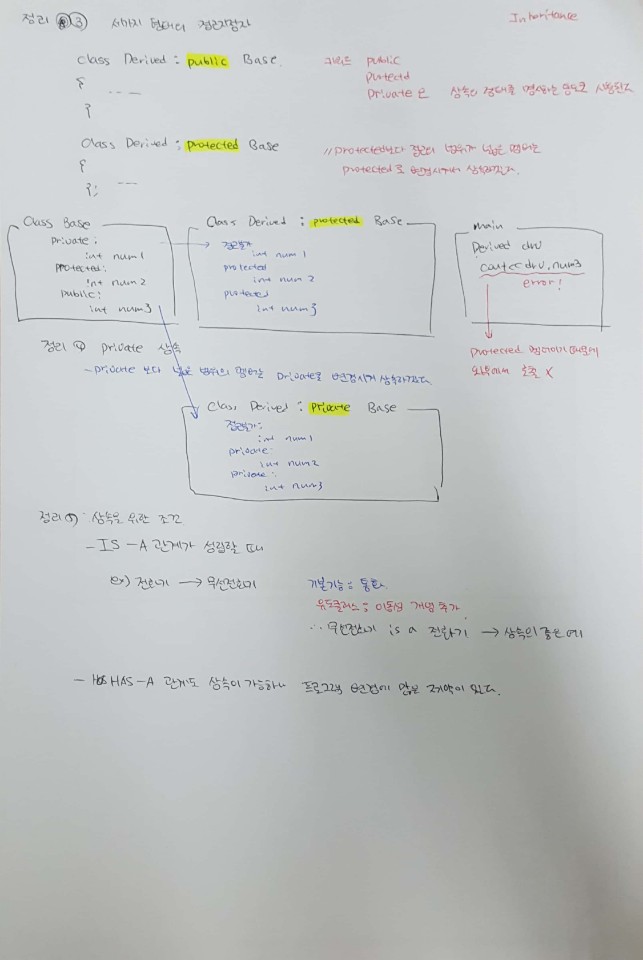 정리 ③ 세가지 형태의 접근지정자
Inheritance
class Derived : public Base
{
----
}
키워드 public
protected
private은 상속의 형태를 명시하는 용도로 사용된다
Class Derived : protected Base
{
---
};
// protected보다 접근의 범위가 넓은 멤버는
protected로 변경시켜서 상속하겠다.
Class Base
private:
int num1
protected:
int num2
public:
int num3
Class Derived : protected Base
접근불가
int num1
protected
int num2
protected
int num3
main
Derived drv
cout<<drv.num3
error!
protected 멤버이기 때문에
외부에서 호출 X
정리 ④ private 상속
- private 보다 넓은 범위의 멤버는 private로 변경시켜 상속하겠다.
Class Derived : private Base
접근불가:
int num1
private:
int num2
private:
int num3
정리 ⑤ 상속을 위한 조건
- IS-A 관계가 성립할 때
ex) 전화기 → 무선전화기
기본기능 : 통화
유도클래스 : 이동성 개념 추가
∴ 무선전화기 is a 전화기 → 상속의 좋은 예
- HAS-A 관계도 상속이 가능하나 프로그램 변경에 많은 제약이 있다.